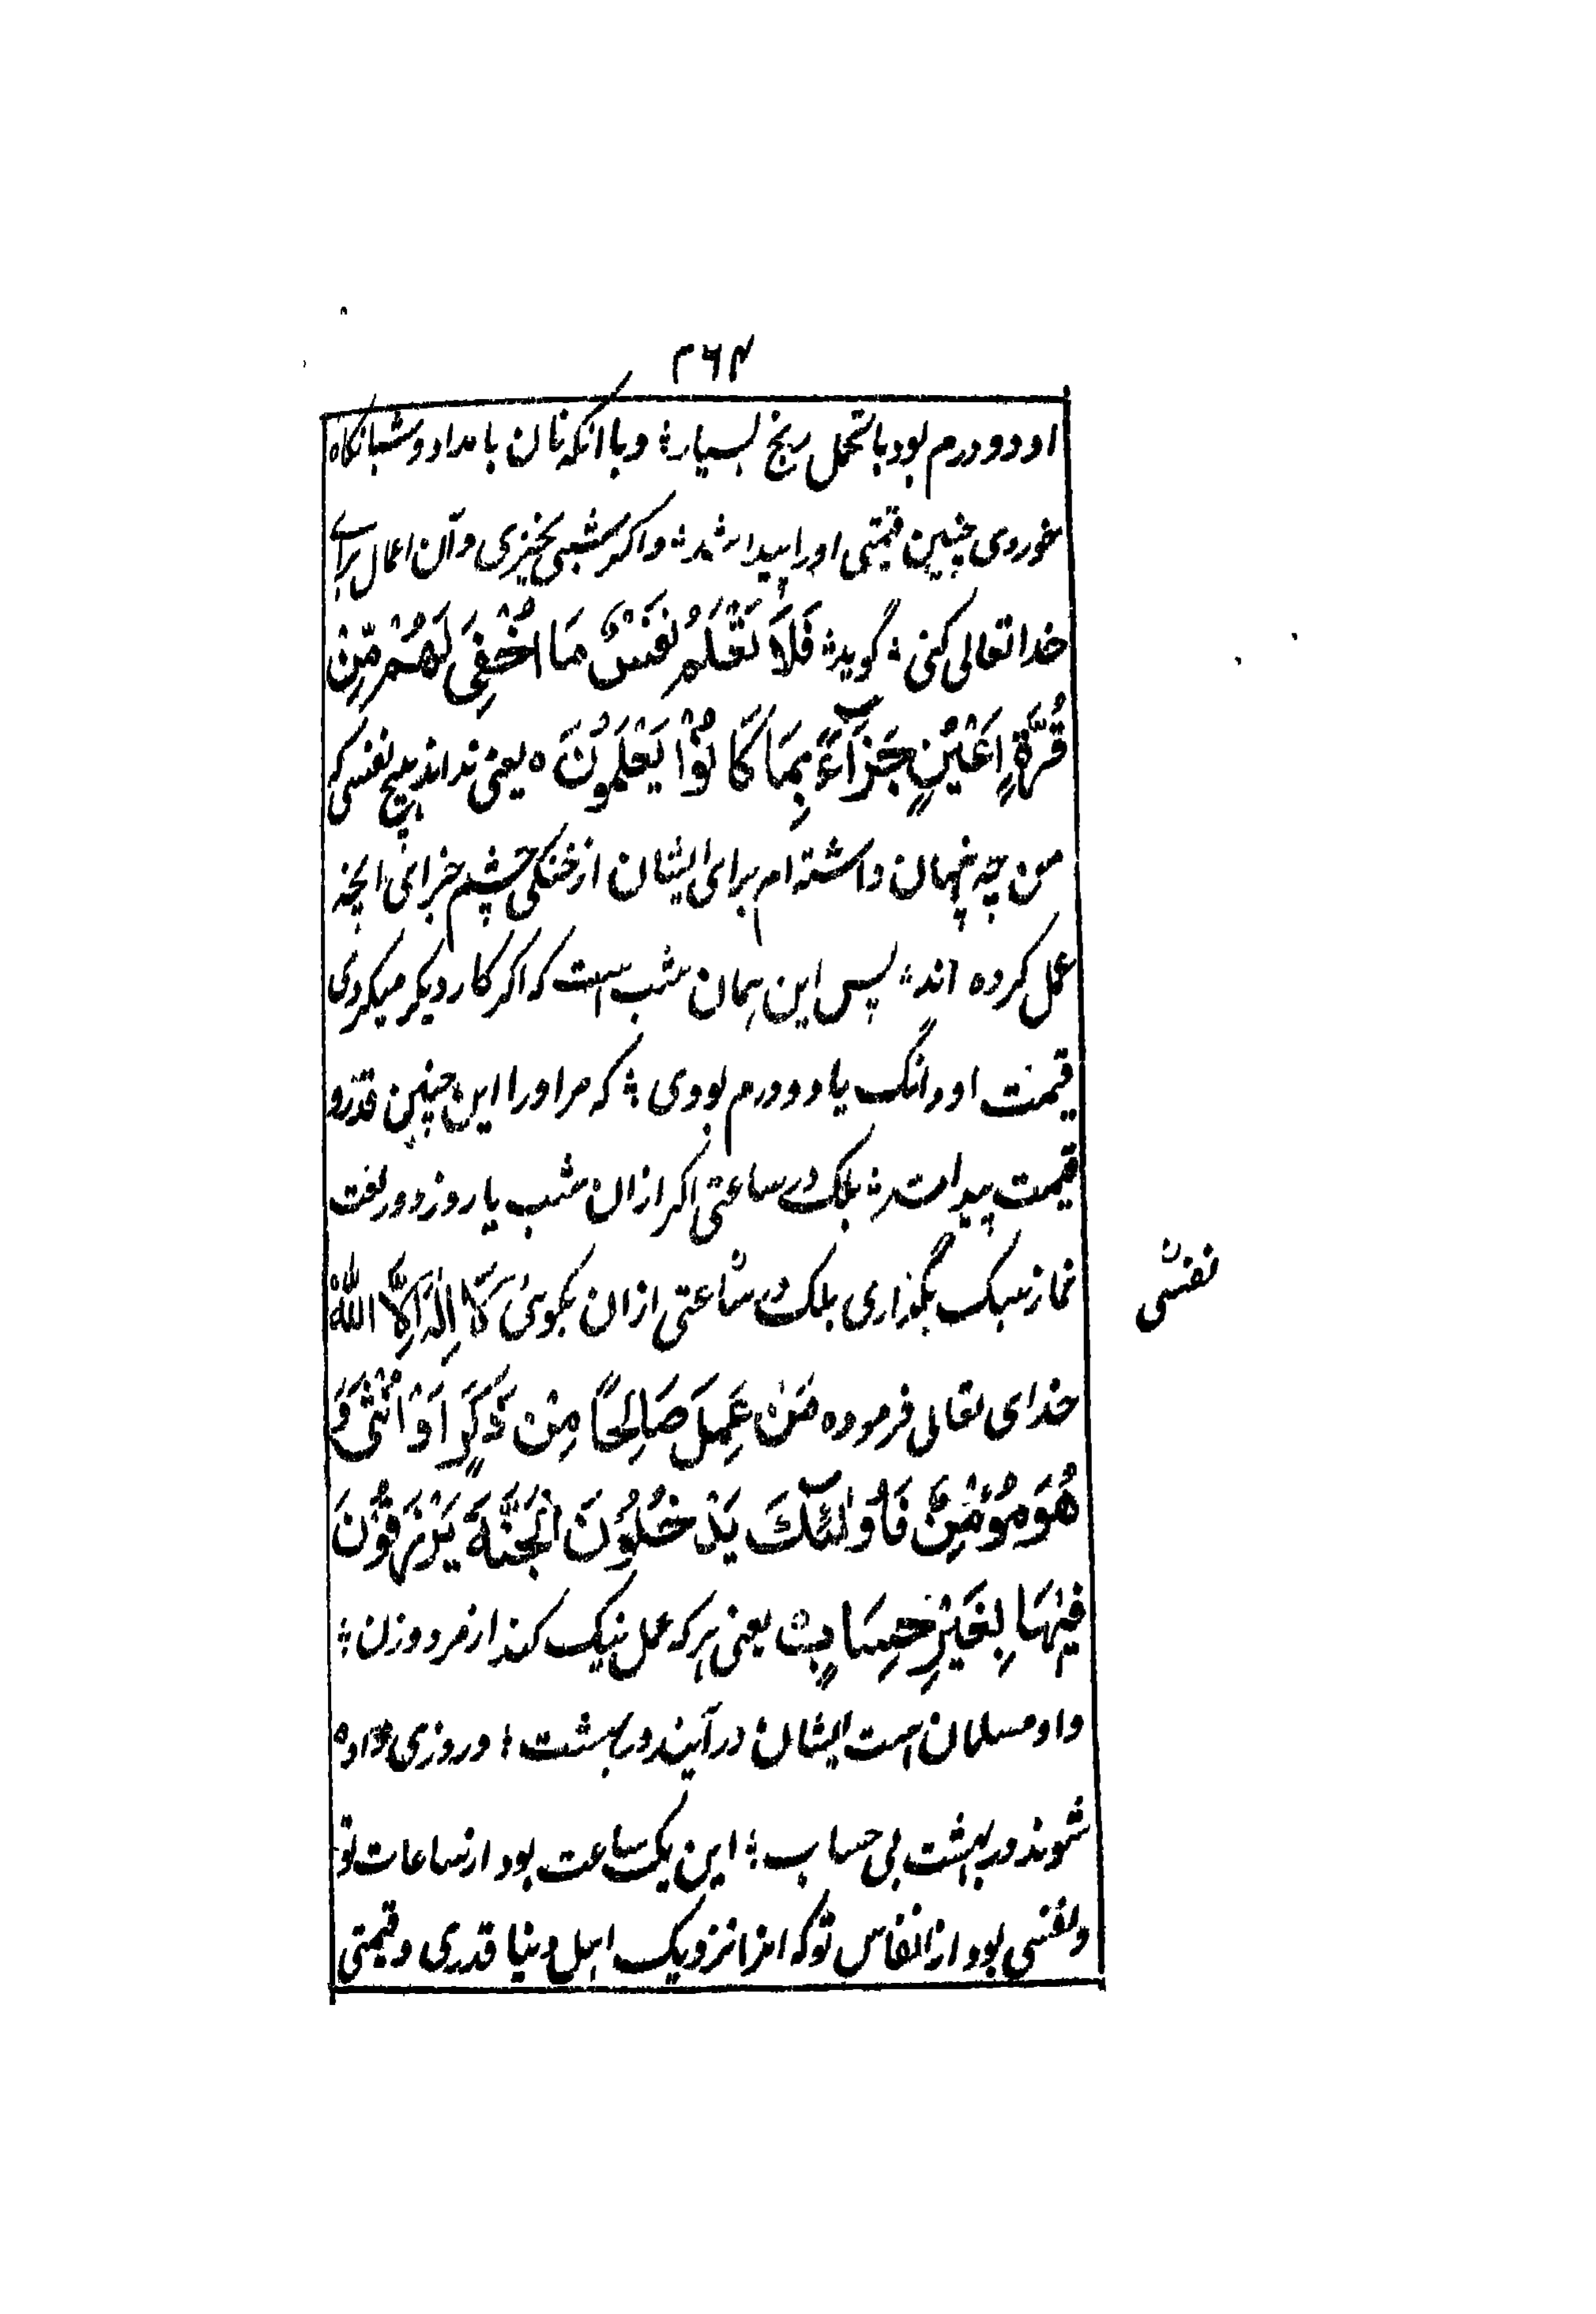 ۲۶۴
او دو درم بود با تحمل رنج بسیار؛ و با انکه نان بامداد و شبانکاه
خوردی چنین قیمتی او را پیدا شد؛ و اکر شبی بخیزی و آن اعمال برای
خدا تعالی کنی؛ گوید؛ فَلَا تَعْلَمُ نَفْسٌ مَا اُخْفِیَ لَهُمْ مِّنْ
قُرَّةِ اَعْیُنٍ جَزَآءً بِمَا کَانُوْا یَعْلَمُوْنَ ه یعنی نداند هیچ نفسی که
من چه پنهان داشته ام برای ایشان از خنکی چشم جزای انچه
عمل کرده اند؛ پس این همان شب است که اکر کار دیکر میکردی
قیمت او دانگ یا دو درم بودی؛ که مر او را این چنین قدر و
قیمت پیدا شد؛ بلک در ساعتی اکر ازان شب یا روز دو رکعت
نماز سبک بگذاری بلک در ساعتی ازان بکوئی لَا اِلٰهَ اِلَّا اللّٰهُ
نفسی
خدای تعالی فرموده مَنْ عَمِلَ صَالِحًا مِنْ ذَکَرٍ اَوْ اُنْثٰی وَ
هُوَ مُؤْمِنٌ فَاُولٰٓئِکَ یَدْخُلُوْنَ الْجَنَّةَ یُرْزَقُوْنَ
فِیْهَا بِغَیْرِ حِسَابٍ یعنی هر که عمل نیک کند از مرد و زن؛
و او مسلمان است ایشان در آیند در بهشت؛ و روزی داده
شوند در بهشت بی حساب؛ این یک ساعت بود از ساعات تو
و نفسی بود از انفاس تو که انرا نزدیک اهل دنیا قدری و قیمتی